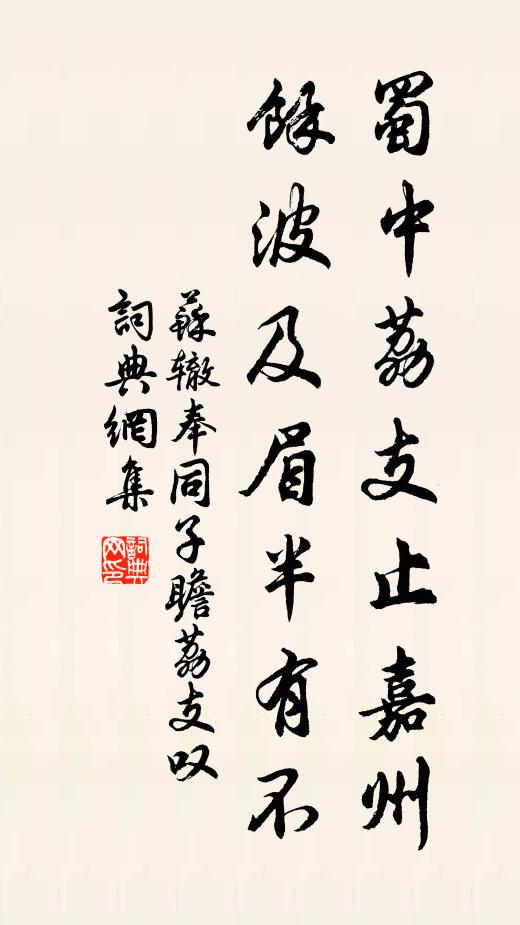 蜀中荔支止嘉州
餘波及眉半有不
蘇辙奉同子瞻荔支叹
詞典網集
詞典
网印